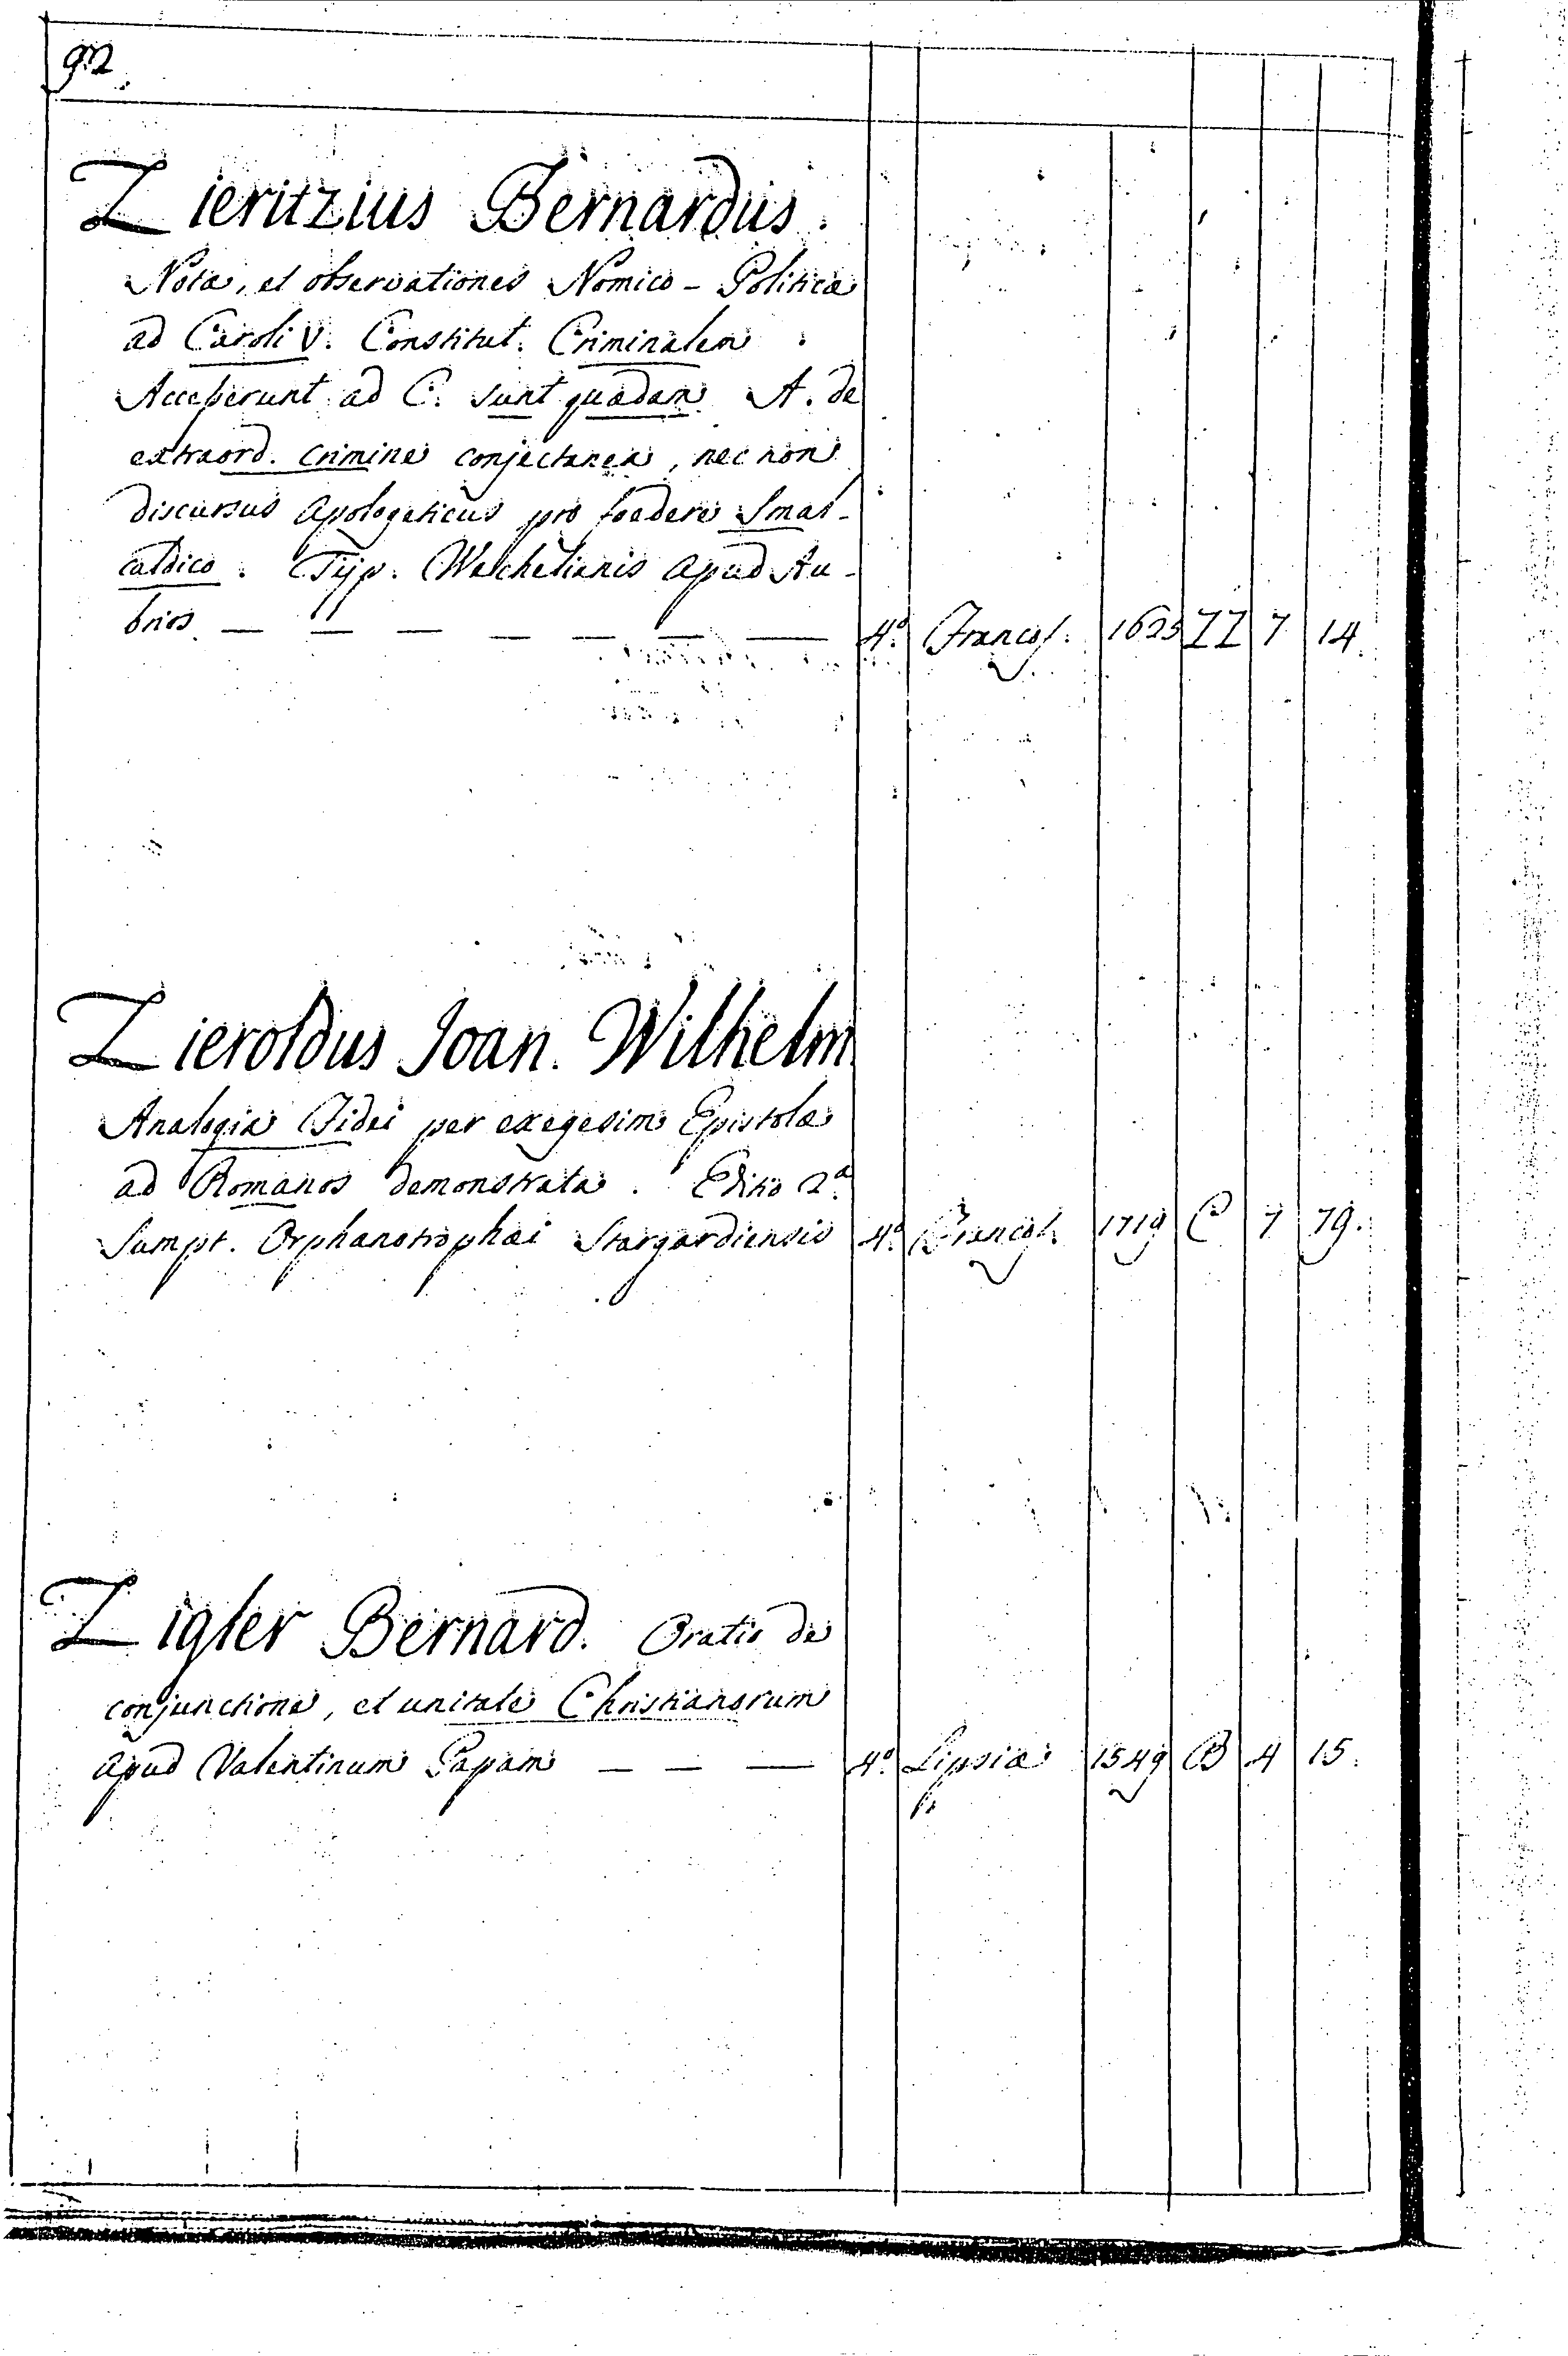 92
Zieritzius Bernardus.
Notæ, et observationes Nomico-Politicæ
ad Caroli V. Constitut. Criminalem
Accesserunt ad C. sunt quædam A. de
extraord. crimine conjectanea, nec non
discursus apologeticus pro foedere Smal-
caldico. Typ. Wechelianis apud Au-
brios — — — — — — — 4.º Francof. 1625 ZZ 7 14.
Zieroldus Joan. Wilhelm
Analogia Fidei per exegesim Epistolæ
ad Romanos demonstrata. Editio 2.ª
Sumpt. Orphanotrophæi Stargardiensis 4.º Francof. 1719 C 7 79.
Zigler Bernard. Oratio de
conjunctione, et unitate Christianorum
apud Valentinum Papam — — — 4.º Lipsiæ 1549 B 4 15.